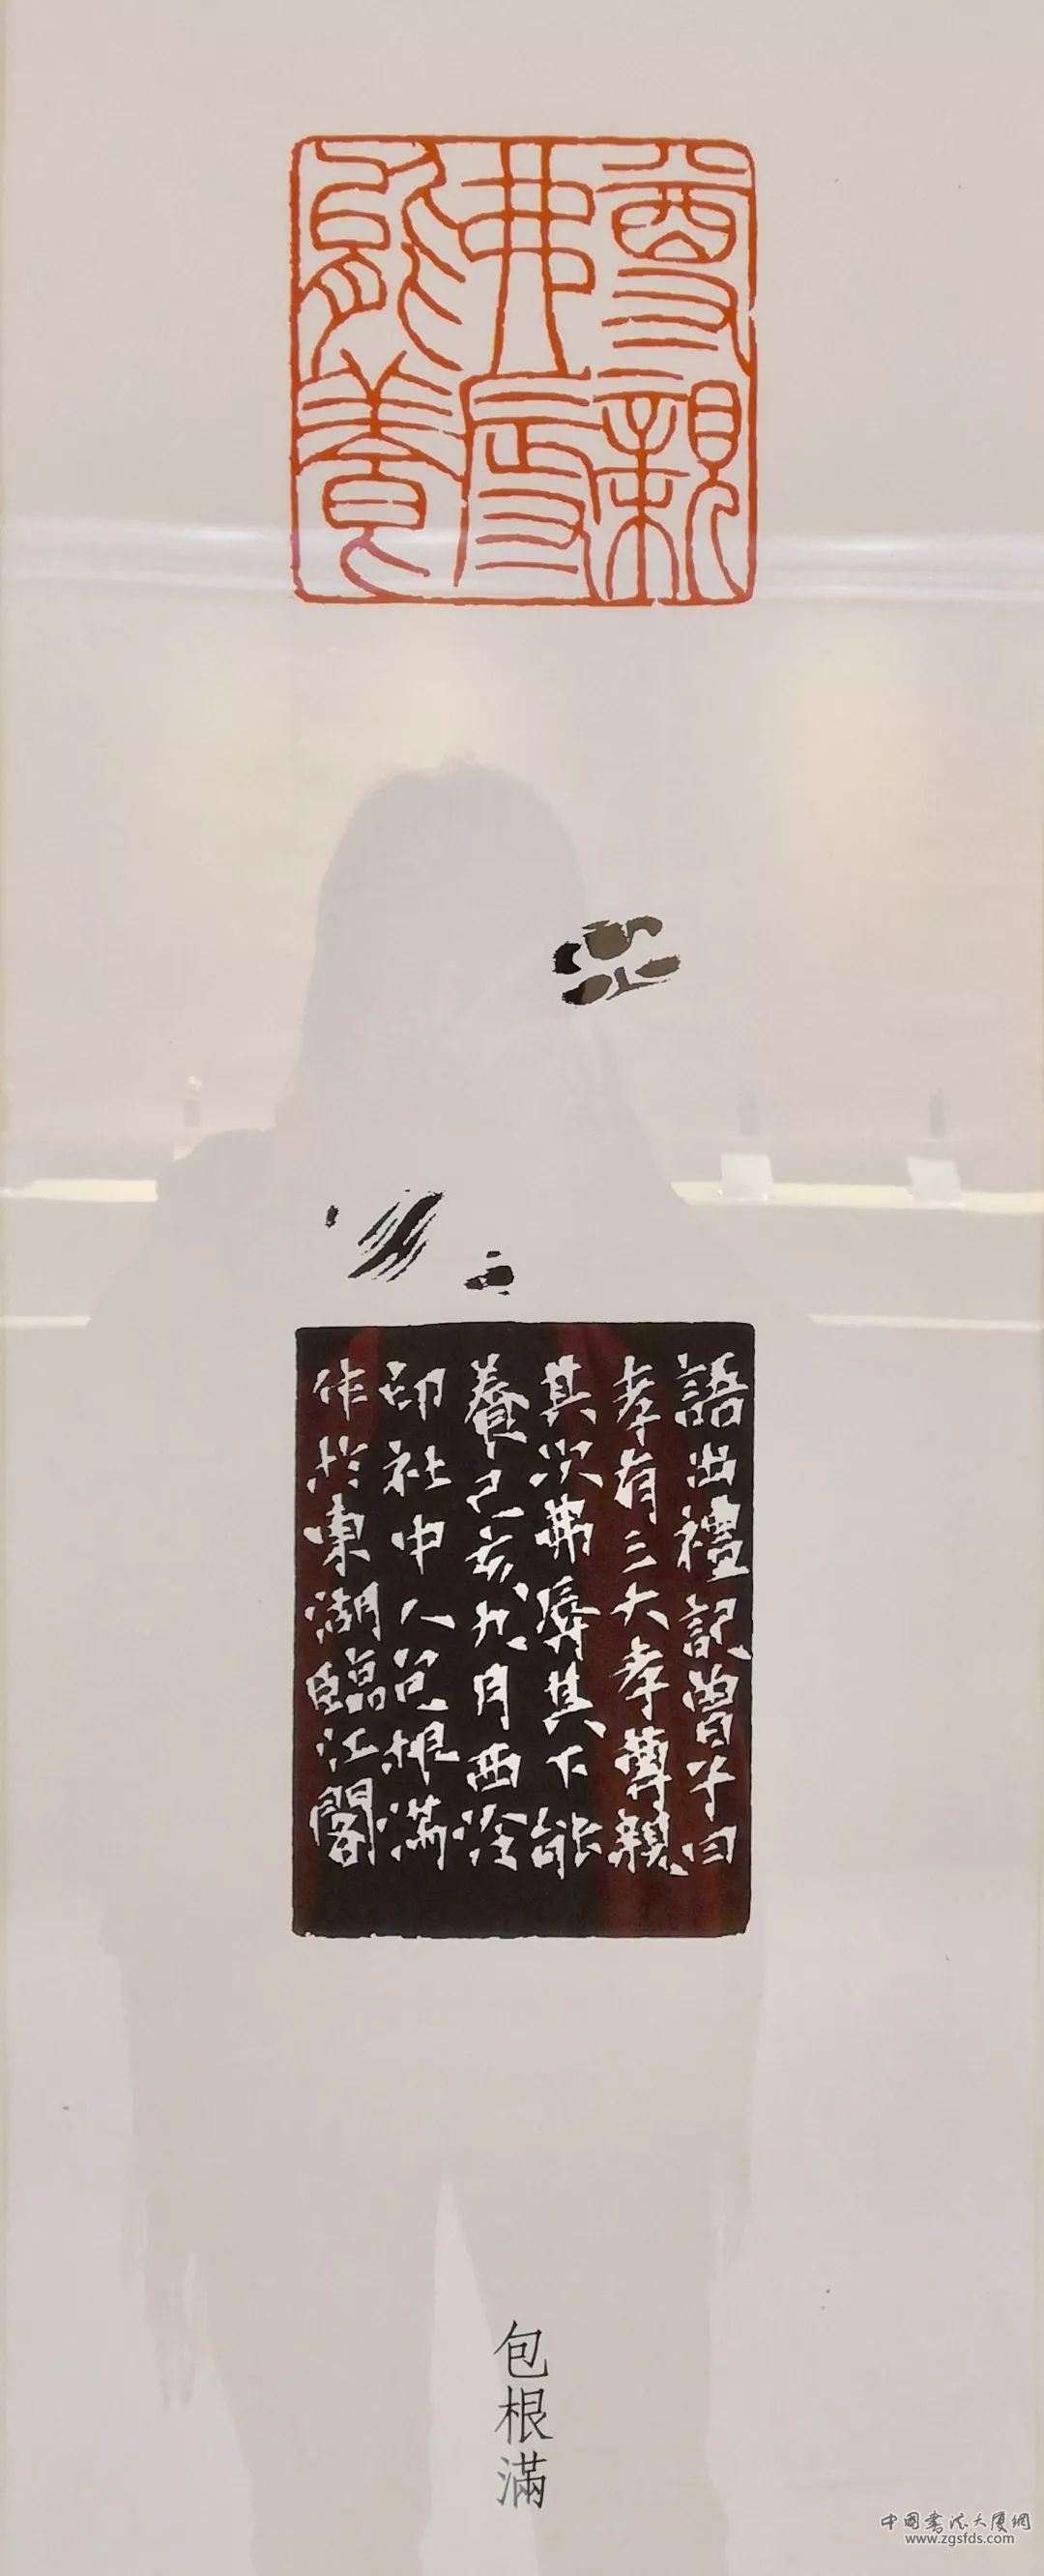 尊親
弗辱
能養
語出禮記曾子曰
孝有三大孝尊親
其次弗辱其下能
養己亥九月西泠
印社中人包根滿
作於東湖臨江閣
包根滿
中國書法大廈網
www.zgsfds.com